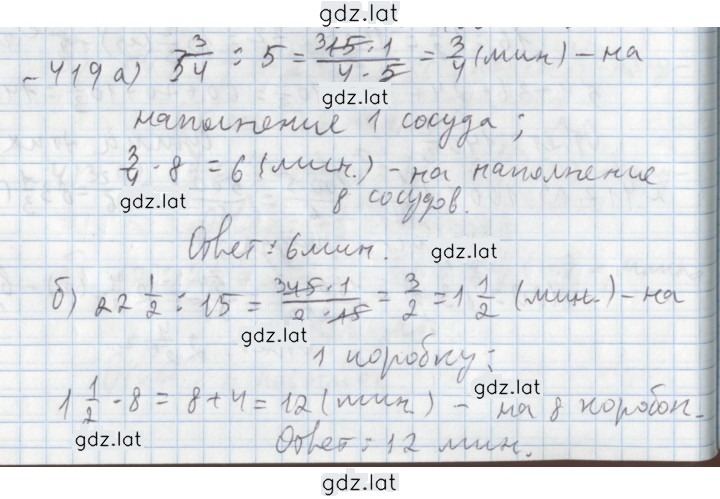 gdz.lat
419 а) 3 3/4 : 5 = 15·1/4·5 = 3/4 (мин) - на
gdz.lat
наполнение 1 сосуда;
3/4 · 8 = 6 (мин.) - на наполнение
gdz.lat
8 сосудов.
Ответ: 6 мин.
gdz.lat
б) 22 1/2 : 15 = 45·1/2·15 = 3/2 = 1 1/2 (мин.) - на
gdz.lat
1 коробку;
gdz.lat
1 1/2 · 8 = 8 + 4 = 12 (мин.) - на 8 коробок.
gdz.lat
Ответ: 12 мин.
gdz.lat